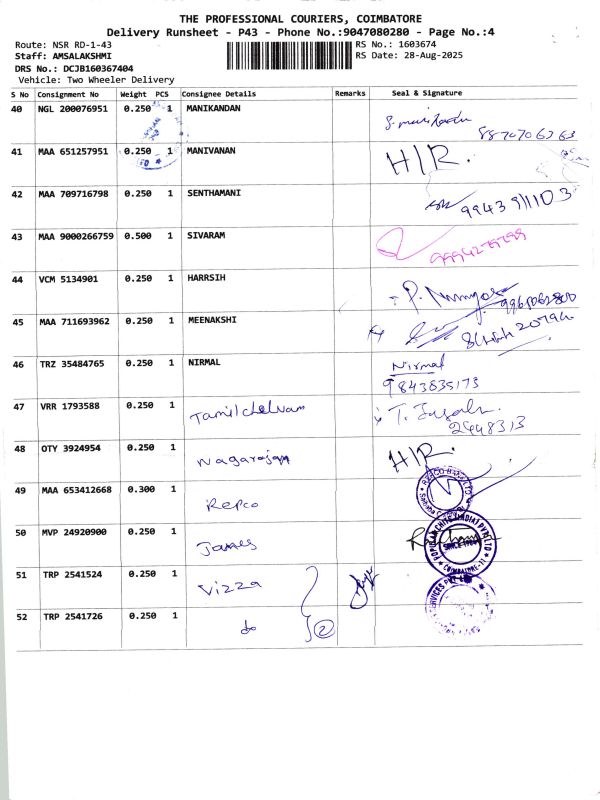 THE PROFESSIONAL COURIERS, COIMBATORE
Delivery Runsheet - P43 - Phone No.:9047080280 - Page No.:4
Route: NSR RD-1-43 RS No.: 1603674
Staff: AMSALAKSHMI RS Date: 28-Aug-2025
DRS No.: DCJB160367404
Vehicle: Two Wheeler Delivery
S No Consignment No Weight PCS Consignee Details Remarks Seal & Signature
40 NGL 200076951 0.250 1 MANIKANDAN
41 MAA 651257951 0.250 1 MANIVANAN H/R.
42 MAA 709716798 0.250 1 SENTHAMANI
9943911103
43 MAA 9000266759 0.500 1 SIVARAM
44 VCM 5134901 0.250 1 HARRSIH
45 MAA 711693962 0.250 1 MEENAKSHI
46 TRZ 35484765 0.250 1 NIRMAL Nirmal
9843835173
47 VRR 1793588 0.250 1 Tamilchelvam
2448313
48 OTY 3924954 0.250 1 Nagarajan H/R.
49 MAA 653412668 0.300 1 Repco
50 MVP 24920900 0.250 1 James
SINCE
COIMBATORE
51 TRP 2541524 0.250 1 Vizza
SERVICES PVT
52 TRP 2541726 0.250 1 do 2